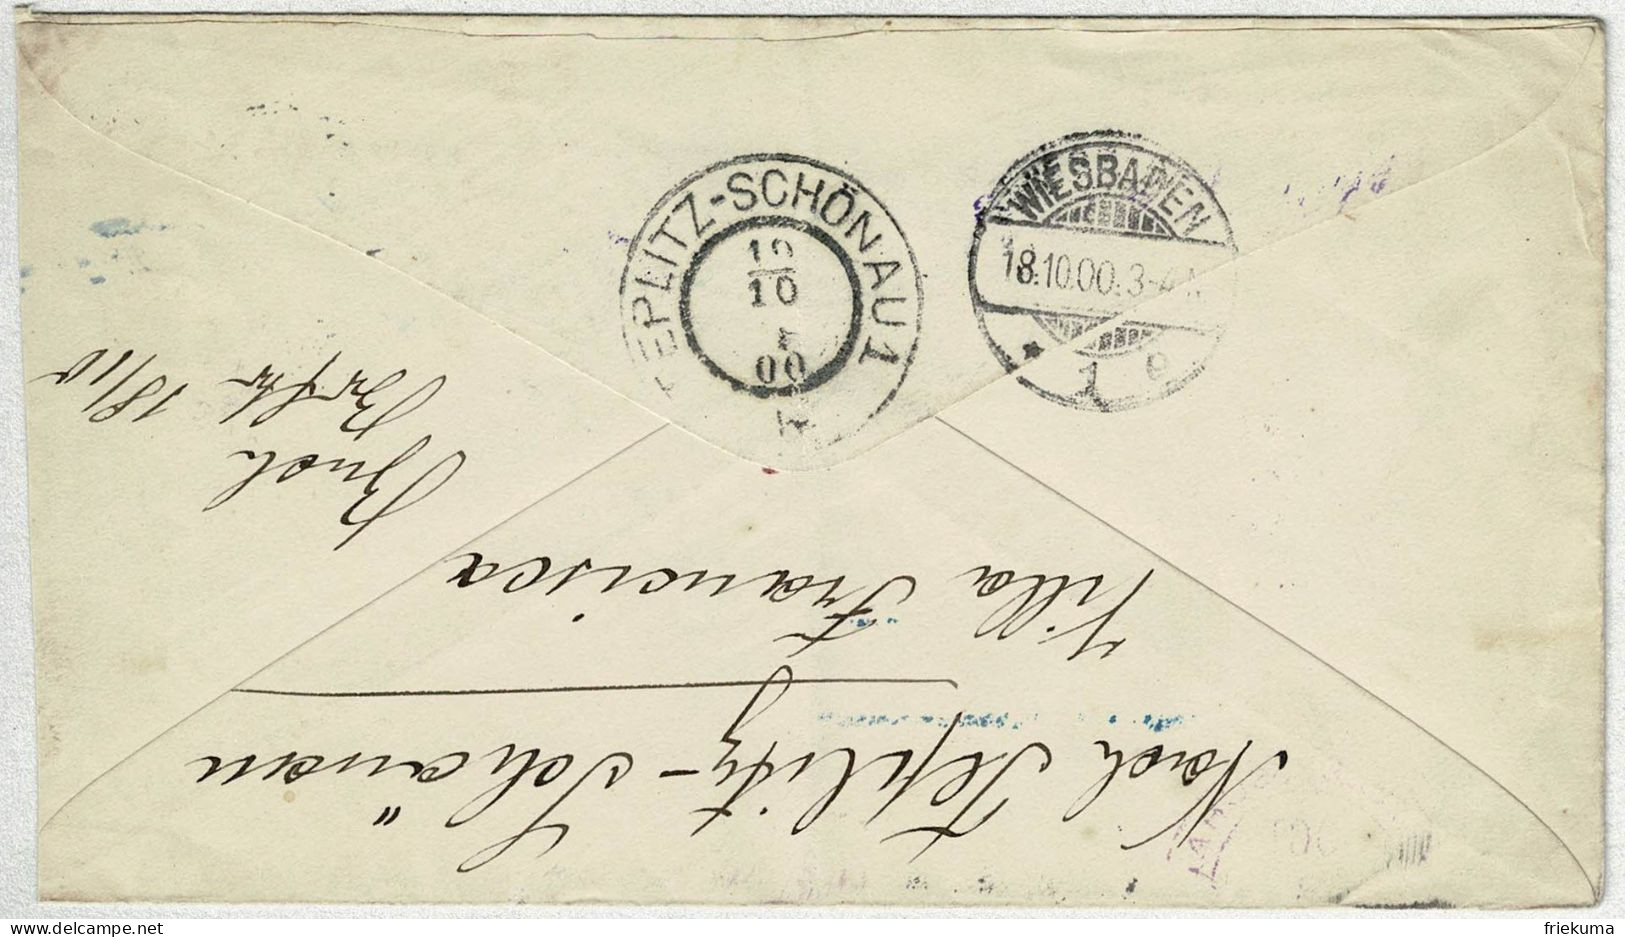 TEPLITZ-SCHÖNAU 1
10
10
00
WIESBADEN
18.10.00. 3-4 N.
* 1 e
Nach Teplitz-Schönau
Villa Francisca
18/10
delcampe.net
friekuma